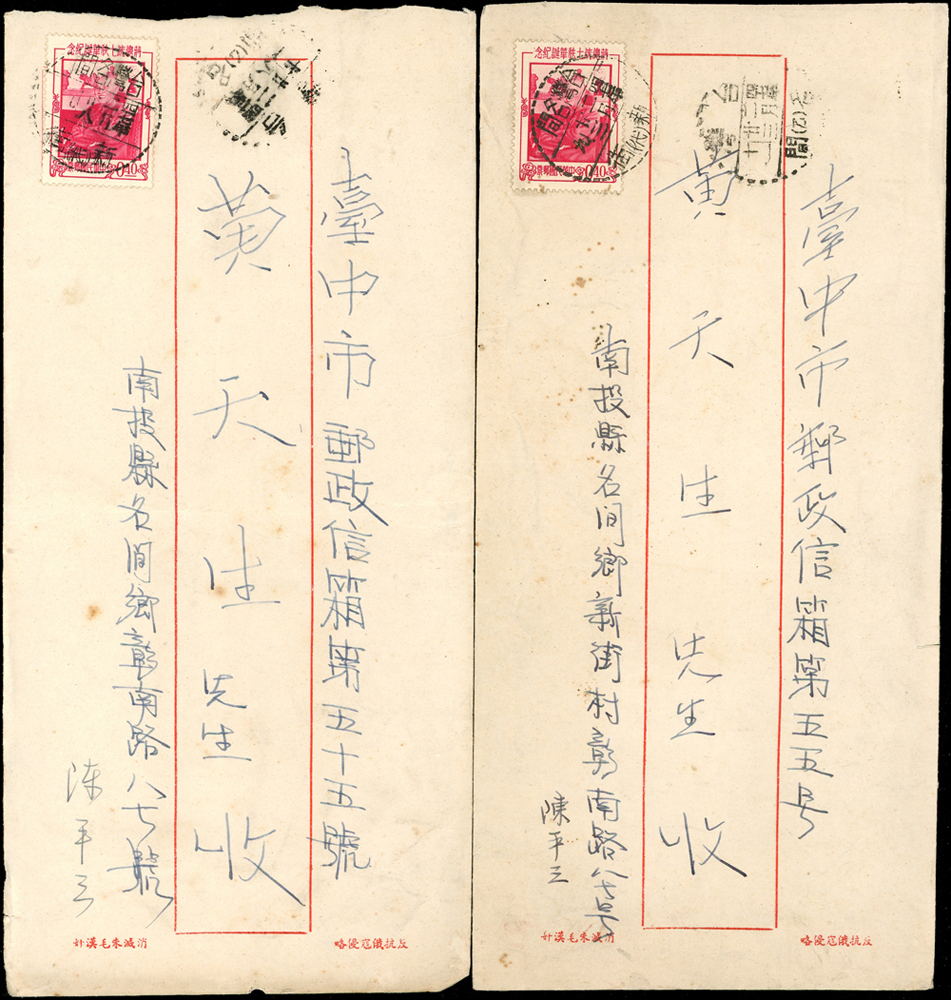 臺中市郵政信箱第五十五號
黃天生先生收
南投縣名間鄉彰南路八七號
陳平三
0.40
反抗俄寇侵略
消滅朱毛漢奸
臺中市郵政信箱第五五号
黃天生先生收
南投縣名間鄉新街村彰南路八七号
陳平三
0.40
反抗俄寇侵略
消滅朱毛漢奸